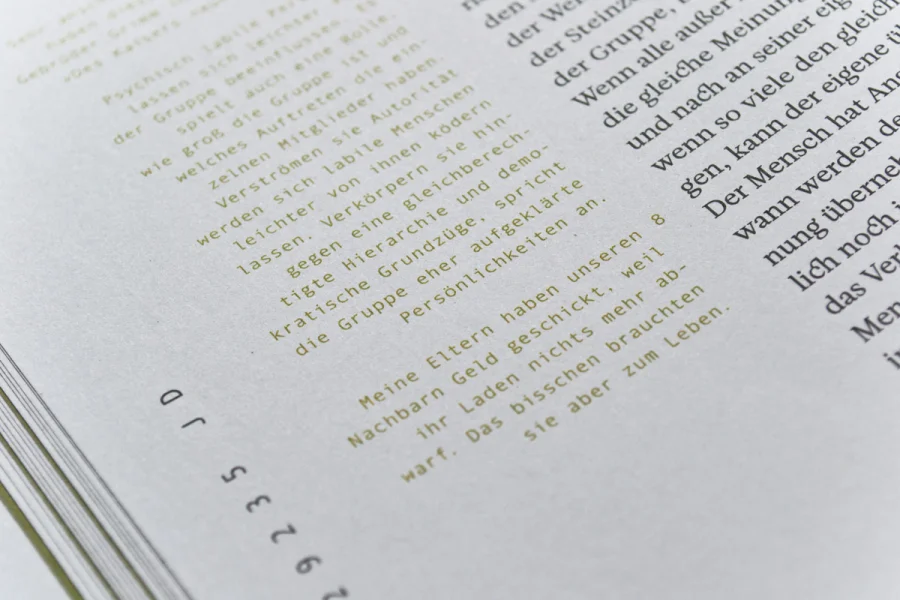 Gebrüder Grimm
»Des Kaisers neue
Psychisch labile
lassen sich leichter
der Gruppe beeinflussen. Es
spielt auch eine Rolle,
wie groß die Gruppe ist und
welches Auftreten die ein-
zelnen Mitglieder haben.
Verströmen sie Autorität
werden sich labile Menschen
leichter von ihnen ködern
lassen. Verkörpern sie hin-
gegen eine gleichberech-
tigte Hierarchie und demo-
kratische Grundzüge, spricht
die Gruppe eher aufgeklärte
Persönlichkeiten an.
Meine Eltern haben unseren 8
Nachbarn Geld geschickt, weil
ihr Laden nichts mehr ab-
warf. Das bisschen brauchten
sie aber zum Leben.
den
der
der
der Gruppe,
Wenn alle außer
die gleiche Meinung
und nach an seiner
wenn so viele den
gen, kann der eigene
Der Mensch hat
wann werden
nung
lich noch
das
D J 5 3 2 9 2